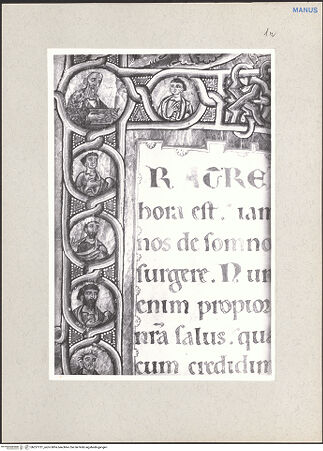 MANUS
1v
R ATRE
hora est. iam
nos de somno
surgere. Nun
enim propior
nr̃a salus. qua
cum credidim